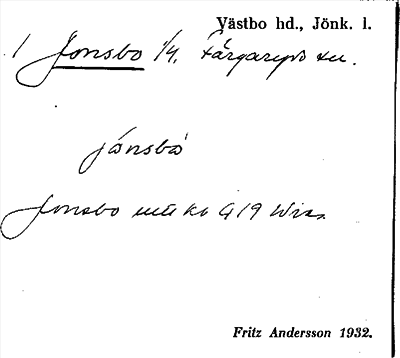 Västbo hd., Jönk. l.
1 Jonsbo 1/4. Färgaryds sn.
jónsbó
Jonsbo
Fritz Andersson 1932.